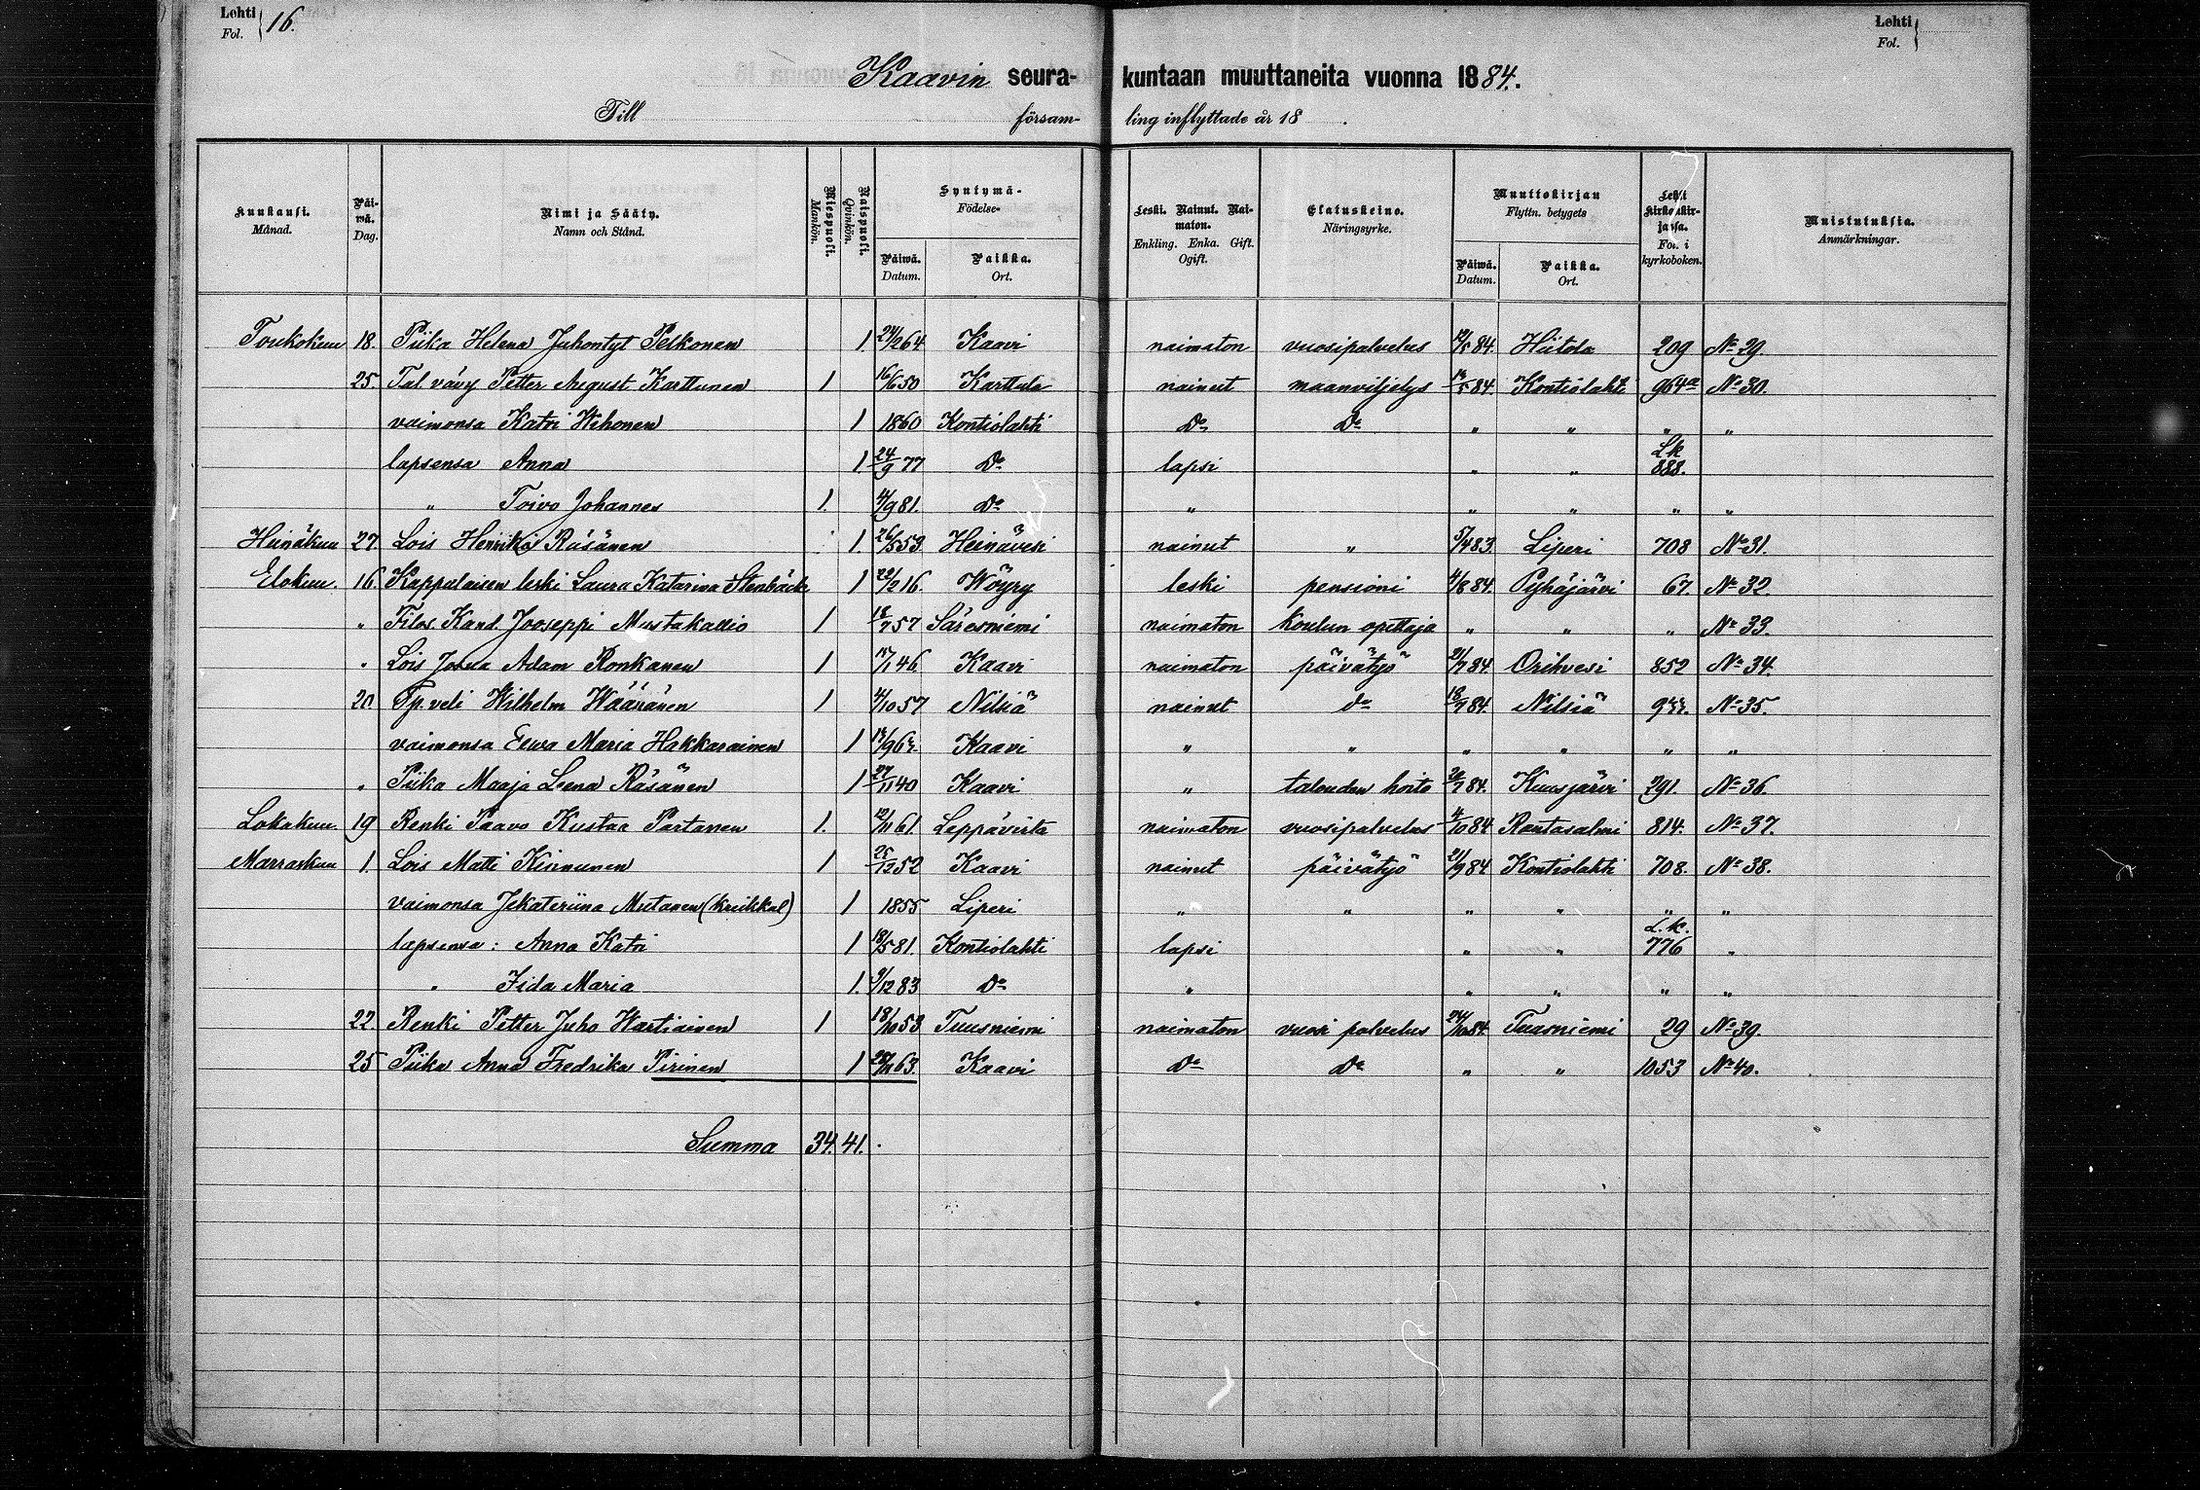 Lehti Fol. 16.
Lehti Fol.
Kaavin seura- kuntaan muuttaneita vuonna 1884.
Till försam- ling inflyttade år 18 .
Kuukausi. Månad. Päiwä. Dag. Nimi ja Sääty. Namn och Stånd. Miespuoli. Mankön. Naispuoli. Qvinkön. Syntymä- Födelse- Päiwä. Datum. Paikka. Ort. Leski. Nainut. Naimaton. Enkling. Enka. Gift. Ogift. Elatuskeino. Näringsyrke. Muuttokirjan Flyttn. betygets Päiwä. Datum. Paikka. Ort. Lehti kirkonkirjassa. Fol. i kyrkoboken. Muistutuksia. Anmärkningar.
Toukokuu 18. Piika Helena Juhontyt Pelkonen 1. 24/2 64 Kaavi naimaton vuosipalvelus 12/5 84. Hiitola 209 No 29.
25 Tal. vävy Petter August Karttunen 1 16/6 50 Karttula nainut maanviljelys 84. Kontiolahti 964a No 30.
vaimonsa Katri Hihonen 1 1860 Kontiolahti Do Do " " " "
lapsensa Anna 1 24/9 77 Do lapsi " " Lk 888.
" Toivo Johannes 1. 4/9 81. Do " " " " "
Heinäkuu 27 Lois Henrika Räsänen 1. 26/5 53 Heinävesi nainut " 5/4 83. Liperi 708 No 31.
Elokuu. 16. Kappalaisen leski Laura Katarina Stenbäck 1 22/2 16 Wöyry leski pensioni 4/8 84. Pyhäjärvi 67. No 32.
" Filos. Kand. Jooseppi Mustakallio 1 18/7 57 Säresniemi naimaton koulun opettaja " " " No 33.
" Lois Josua Adam Ronkanen 1 15/1 46 Kaavi naimaton päivätyö 21/7 84. Orihvesi 852 No 34.
20 Tp. veli Wilhelm Wäänänen 1 4/10 57 Nilsiä nainut do 18/7 84. Nilsiä No 35.
vaimonsa Eewa Maria Hakkarainen 1 Kaavi " " " " " "
" Piika Maaja Leena Räsänen 1 27/11 40 Kaavi " talouden hoito 84. Kuusjärvi 291. No 36.
Lokakuu. 19 Renki Paavo Kustaa Partanen 1. 12/11 61. Leppävirta naimaton vuosipalvelus 4/10 84 Rantasalmi 814. No 37.
Marraskuu 1. Lois Matti Kinnunen 1 25/12 52 Kaavi nainut päivätyö 21/9 84 Kontiolahti 708. No 38.
vaimonsa Jekateriina Mutanen (kreikkal) 1 1855 Liperi " " " " " "
lapsensa: Anna Katri 1 18/5 81. Kontiolahti lapsi " " L.k. 776 "
" Iida Maria 1. 9/12 83 Do " " " " "
22 Renki Petter Juho Hartiainen 1 18/10 53 Tuusniemi naimaton vuosi palvelus 24/10 84. Tuusniemi 29 No 39.
25 Piika Anna Fredrika Pirinen 1 28/11 63. Kaavi Do Do " " 1053 No 40.
Summa 34. 41.